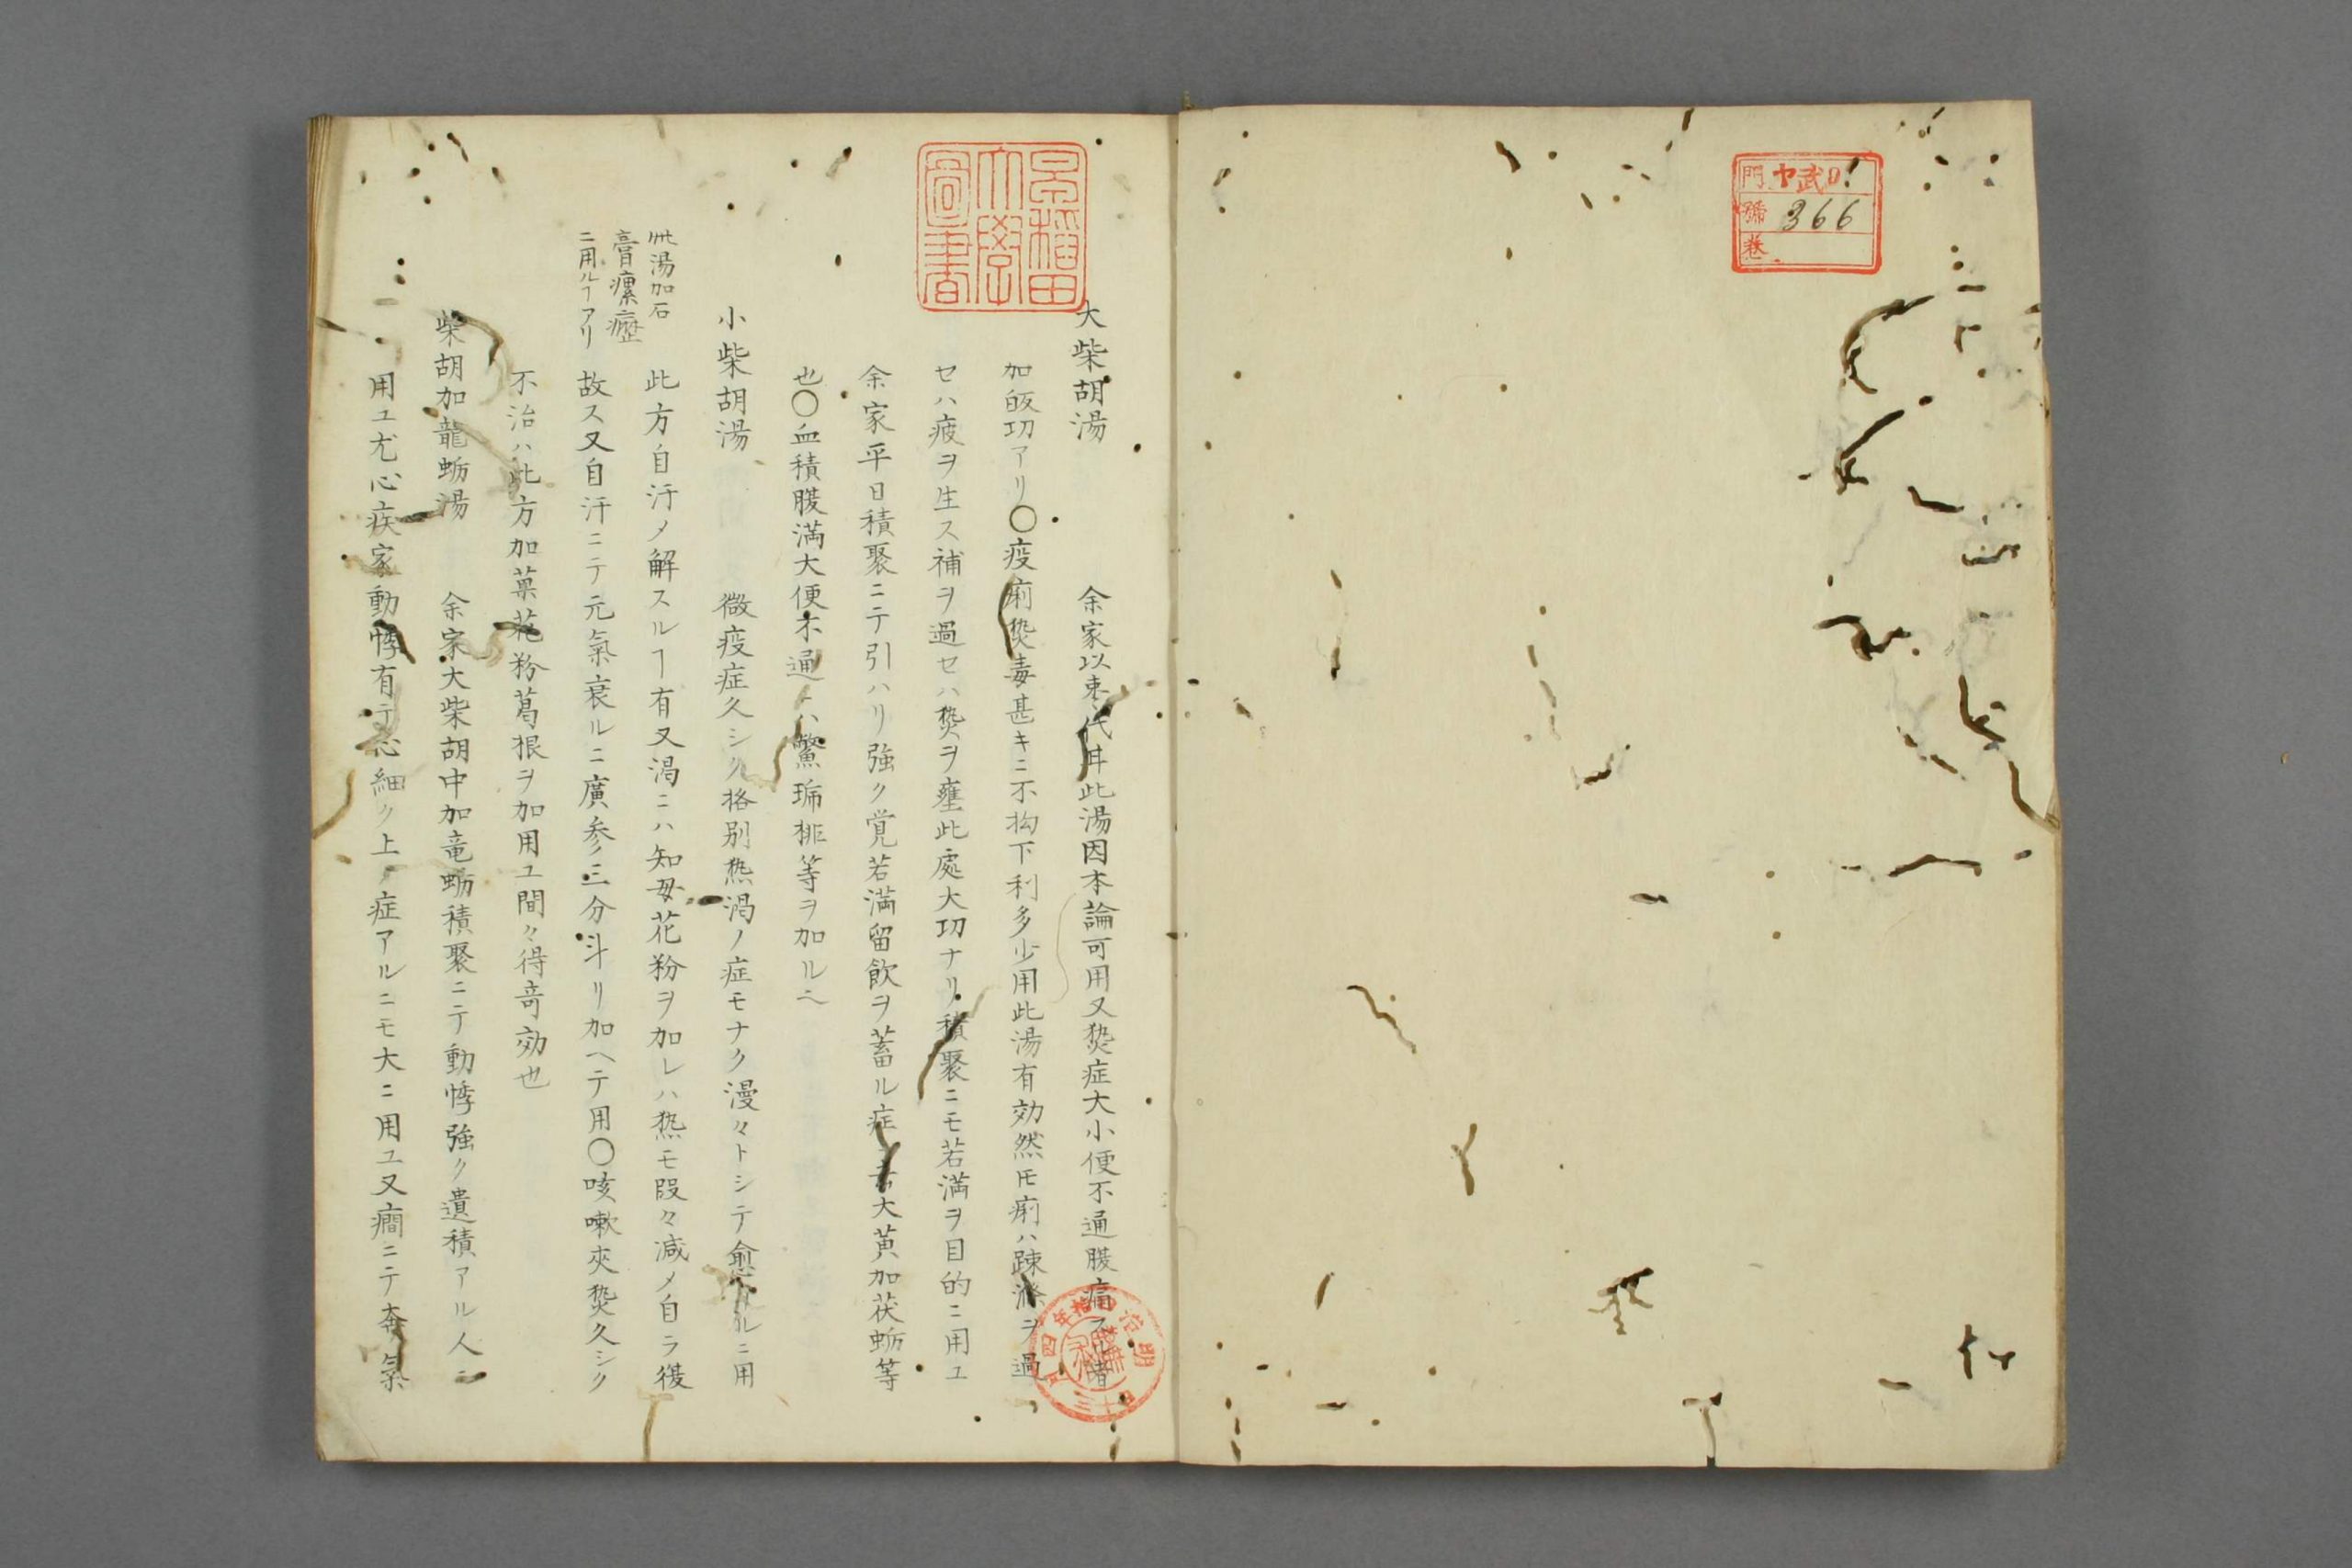 門 ヤ武01
號 366
卷
早稲田
大學
圖書
大柴胡湯 余家以枣代丼此湯因本論可用又𤍠症大小便不通腹痛
加皈功アリ〇疫痢𤍠毒甚キニ不拘下利多少用此湯有効然𪜈痢ハ疎滌ヲ過
セハ疲ヲ生ス補ヲ過セハ𤍠ヲ壅此處大切ナリ積聚ニモ若満ヲ目的ニ用ユ
余家平日積聚ニテ引ハリ強ク覚若満留飲ヲ蓄ル症 大黄加茯蛎等
也〇血積腹満大便不通 ハ鱉 等ヲ加ルヘ
小柴胡湯 微疫症久シク格別熱渇ノ症モナク漫々トシテ愈 ルニ用
此方自汗〆解スルヿ有又渇ニハ知母花粉ヲ加レハ熱モ段々减〆自ラ復
故ス又自汗ニテ元氣衰ルニ廣参三分斗リ加ヘテ用〇咳嗽夾𤍠久シク
不治ハ此方加菓花粉葛根ヲ加用ユ間々得竒効也
此湯加石
膏瘰癧
ニ用ルヿアリ
柴胡加龍蛎湯 余家大柴胡中加竜蛎積聚ニテ動悸強ク遺積アル人ニ
用ユ尤心疾家動悸有テ心細ク上ノ症アルニモ大ニ用ユ又癇ニテ奔氣